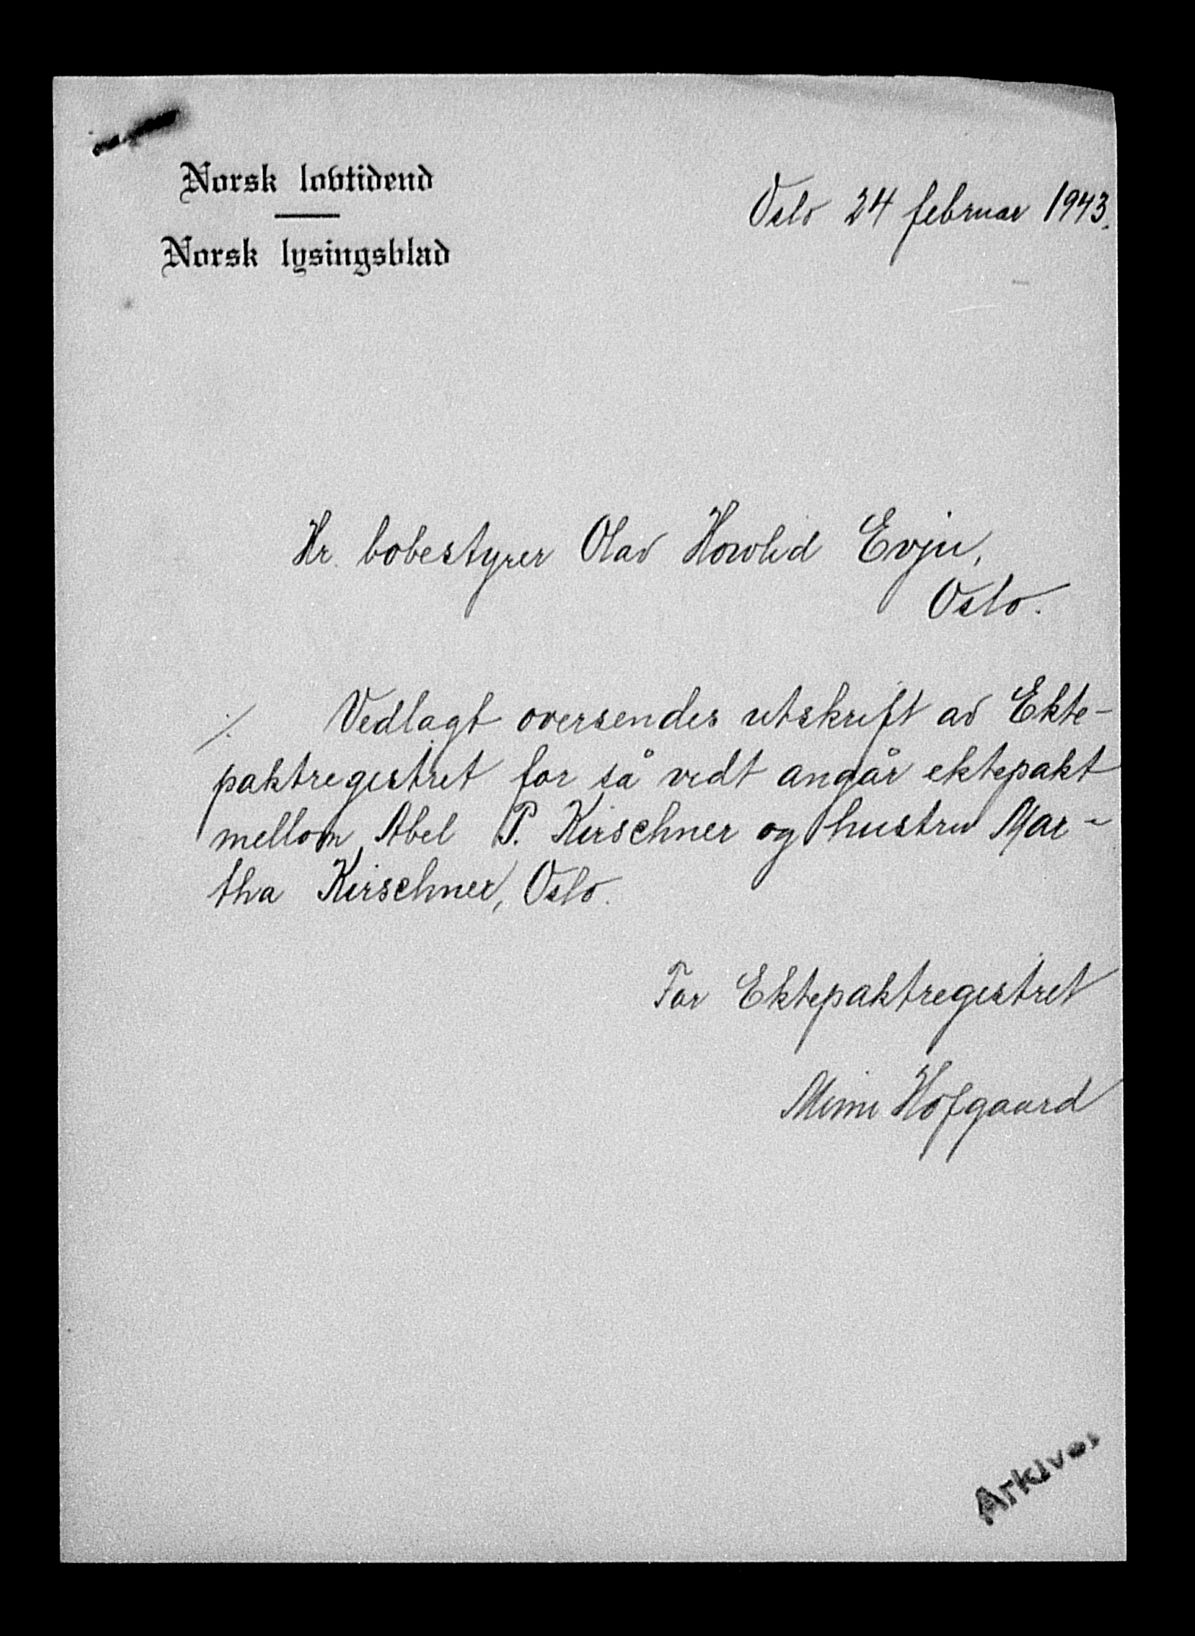 Norsk lovtidend
Norsk lysingsblad
Oslo 24 februar 1943.
Hr. bobestyrer Olav Hovlid Evju,
Oslo.
./. Vedlagt oversendes utskrift av Ekte-
paktregistret for så vidt angår ektepakt
mellom Abel P. Kirschner og hustru Mar-
tha Kirschner, Oslo.
For Ektepaktregistret
Mimi Hofgaard
Arkiver